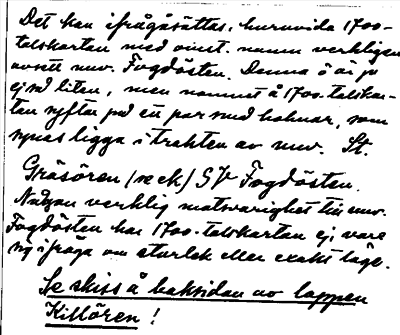 Det kan ifrågasättas, huruvida 1700-
talskartan med ovinst. namn verkligen
avsett nuv. Fogdösten. Denna ö är ju
ej så liten, men namnet å 1700-talskar-
tan syftar på ett par små holmar, som
synas ligga i trakten av nuv. St.
Gräsören (se ek) SV Fogdösten.
Någon verklig motsvarighet till nuv.
Fogdösten har 1700-talskartan ej, vare
sig i fråga om storlek eller exakt läge.
Se skiss å baksidan av lappen
Killören!